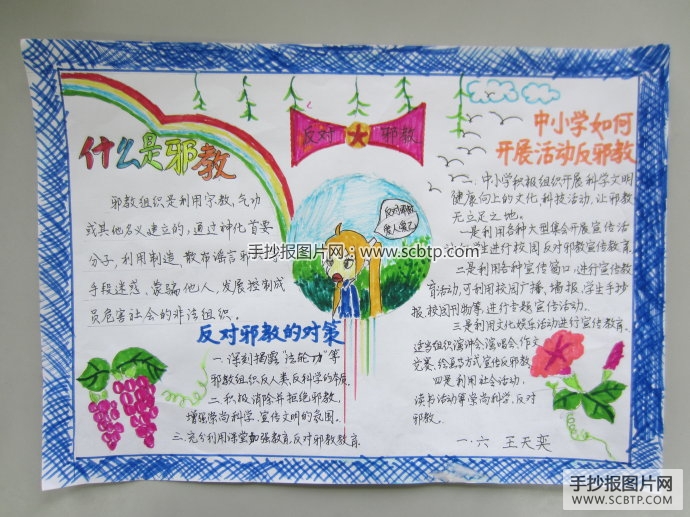 反对 邪教
什么是邪教
邪教组织是利用宗教、气功
或其他名义建立的,通过神化首要
分子,利用制造、散布谣言邪
手段迷惑、蒙骗他人,发展控制成
员危害社会的非法组织。
反对邪教
手抄报图片网 www.scbtp.com
反对邪教的对策
一.深刻揭露"法轮功"等
邪教组织反人类,反科学的本质.
二.积极消除并拒绝邪教,
增强崇尚科学,宣传文明的氛围.
三.充分利用课堂加强教育,反对邪教教育.
中小学如何
开展活动反邪教
一.中小学积极组织开展科学文明
健康向上的文化科技活动,让邪教
无立足之地。
一是利用各种大型集会开展宣传活
学生进行校园反对邪教宣传教育.
二是利用各种宣传窗口,进行宣传教
育活动,可利用校园广播,墙报,学生手抄
报,校园刊物等,进行专题宣传活动.
三是利用文化娱乐活动进行宣传教育.
适当组织演讲会,演唱会,作文
竞赛,绘画等方式宣传反邪教.
四是利用社会活动,
读书活动等崇尚科学,反对
邪教.
一.六 王天奕
手抄报图片网
WWW.SCBTP.COM